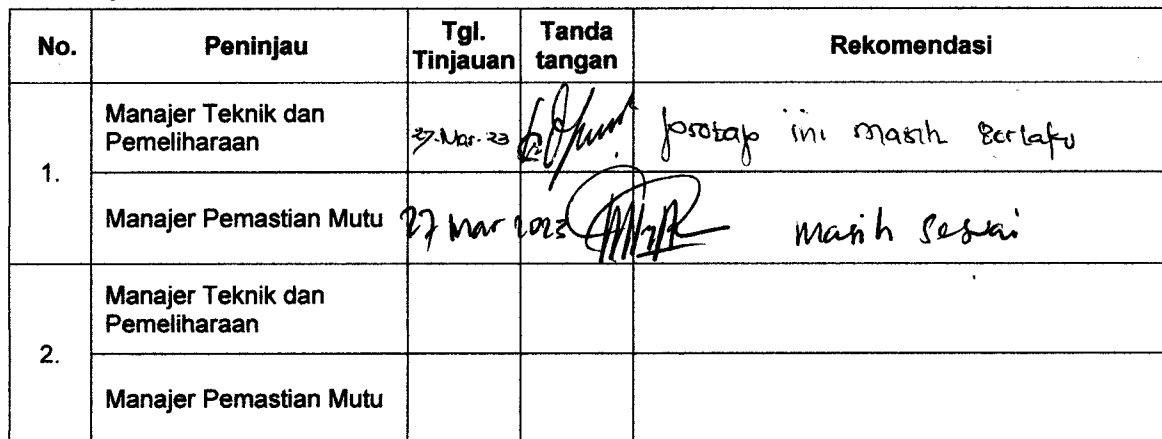 No. Peninjau Tgl. Tinjauan Tanda tangan Rekomendasi
1.
Manajer Teknik dan
Pemeliharaan
27-Mar-23
protap ini masih berlaku
Manajer Pemastian Mutu
27 Mar 2023
masih sesuai
2.
Manajer Teknik dan
Pemeliharaan
Manajer Pemastian Mutu